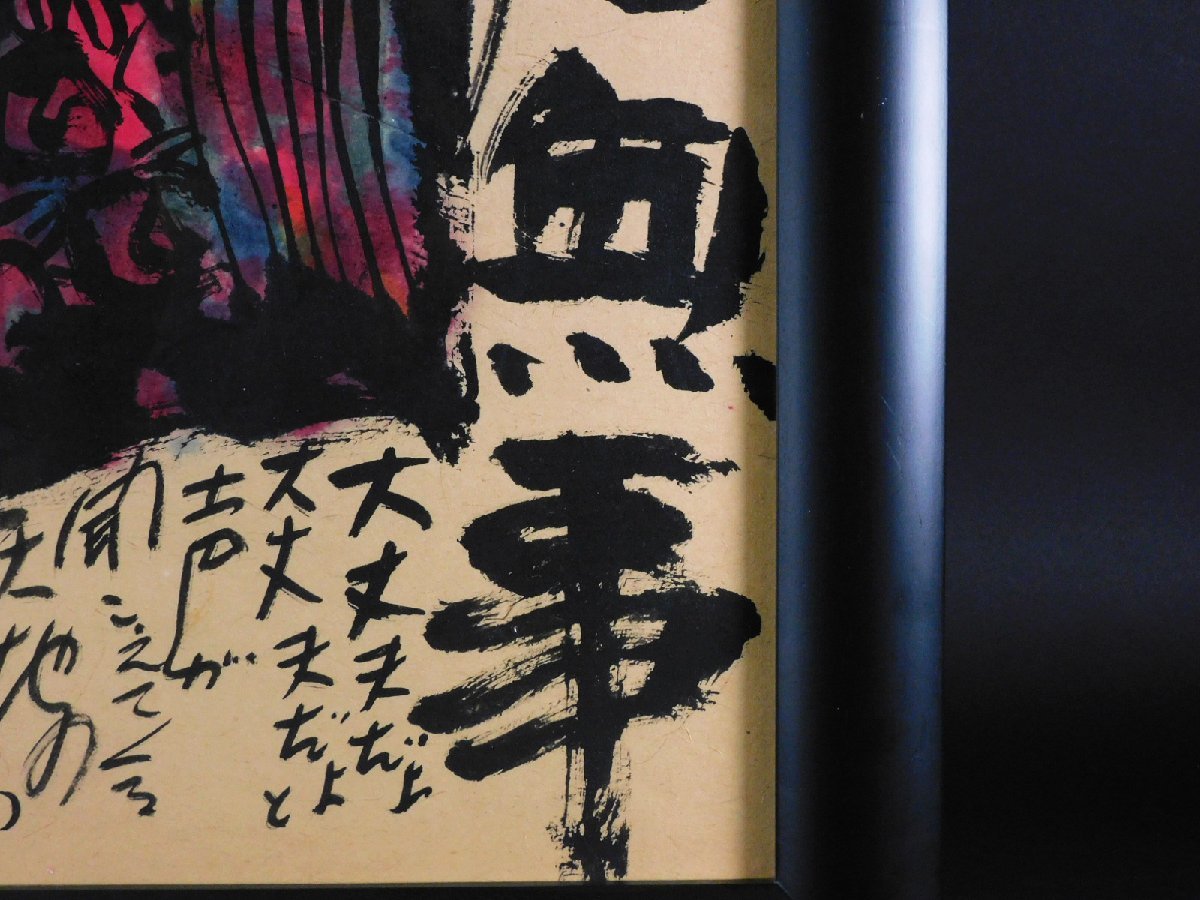 無事
大丈夫だよ
大丈夫だよと
声が
聞こえてくる
天地の